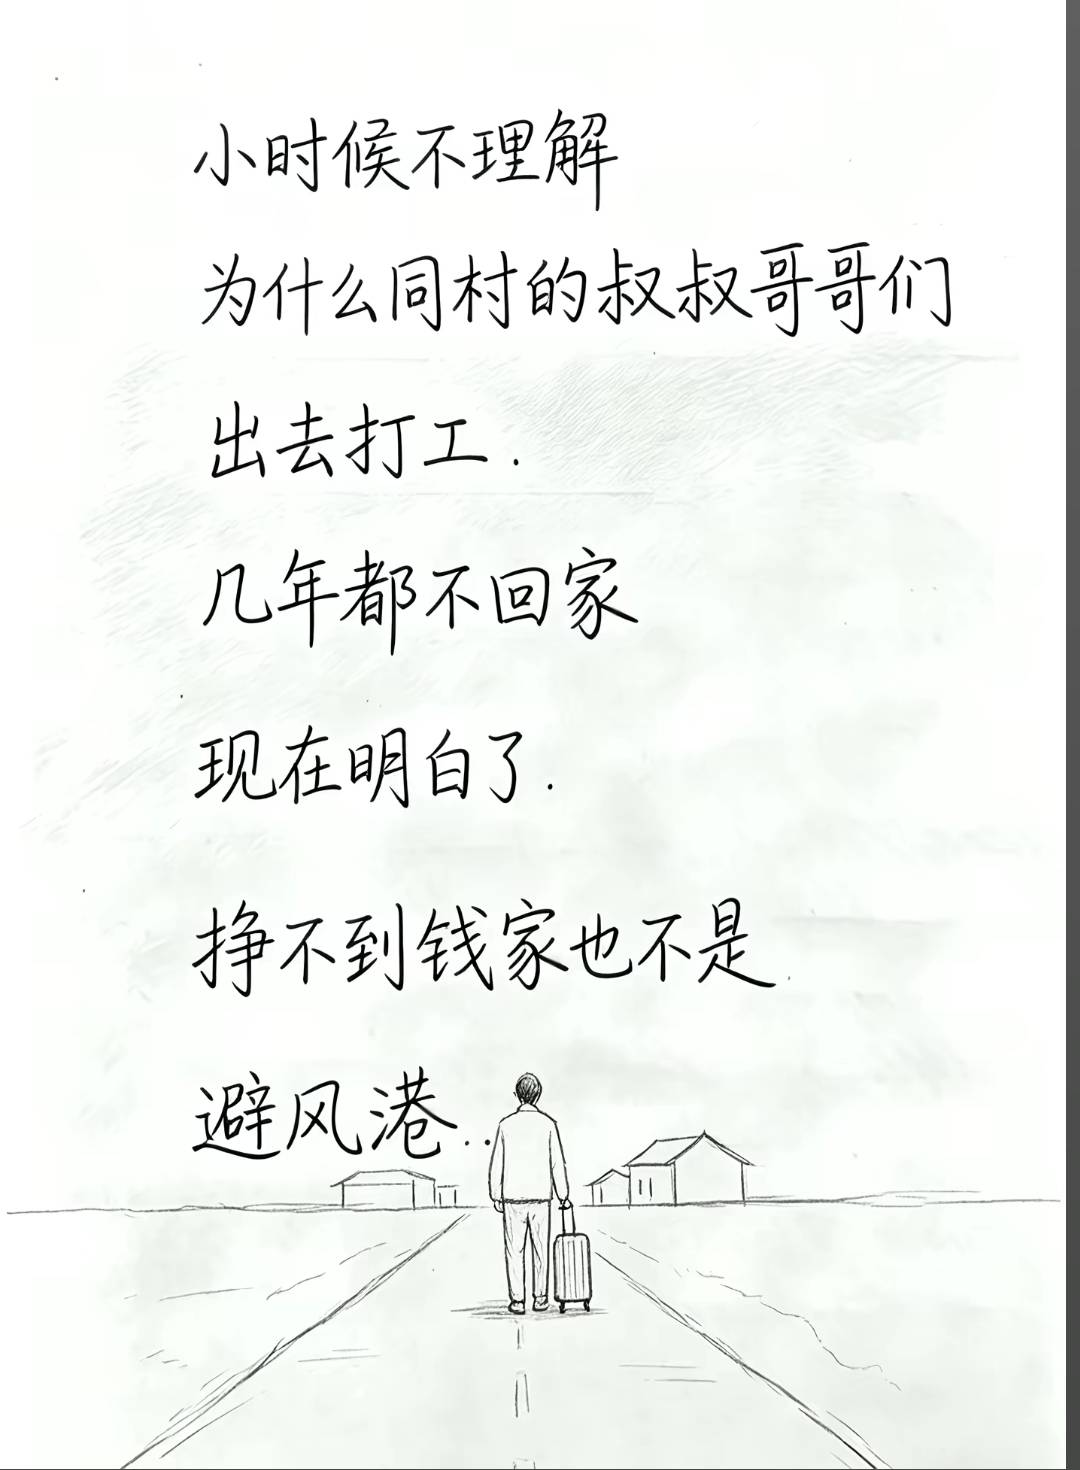 小时候不理解
为什么同村的叔叔哥哥们
出去打工.
几年都不回家
现在明白了.
挣不到钱家也不是
避风港..